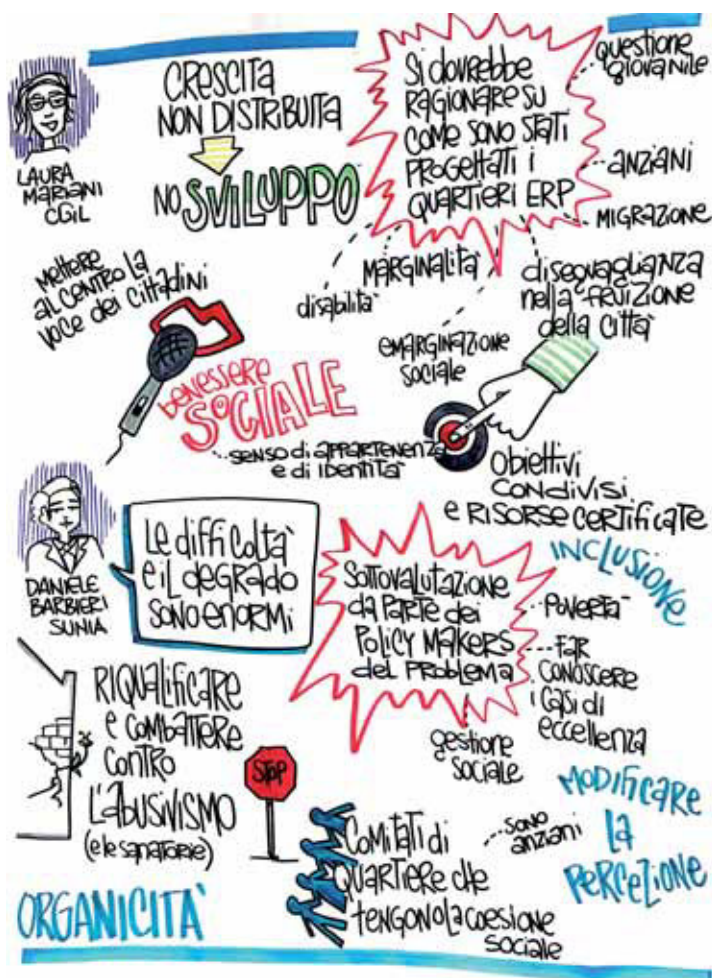 LAURA
MARIANI
CGIL
CRESCITA
NON DISTRIBUITA
NO SVILUPPO
Si dovrebbe
RAGIONARE SU
COME SONO STATI
PROGETTATI i
QUARTIERI ERP
questione
giovanile
ANZIANI
MIGRAZIONE
diseguaglianza
nella fruizione
della città
MARGINALITÀ
disabilità
EMARGINAZIONE
SOCIALE
Mettere
al centro la
voce dei cittadini
benessere
SOCIALE
senso di appartenenza
e di identità
Obiettivi
condivisi
e RISORSE CERTIFICATE
INCLUSIONE
DANIELE
BARBIERI
SUNIA
Le difficoltà
e il degrado
sono enormi
SOTTOVALUTAZIONE
da parte dei
Policy MAKERS
del PROBLEMA
POVERTÀ
FAR
CONOSCERE
i casi di
eccellenza
gestione
sociale
RIQUALIFICARE
e COMBATTERE
CONTRO
L'ABUSIVISMO
(e le sanatorie)
STOP
Comitati di
quartiere che
tengono la coesione
sociale
sono
anziani
MODIFICARE
LA
PERCEZIONE
ORGANICITÀ